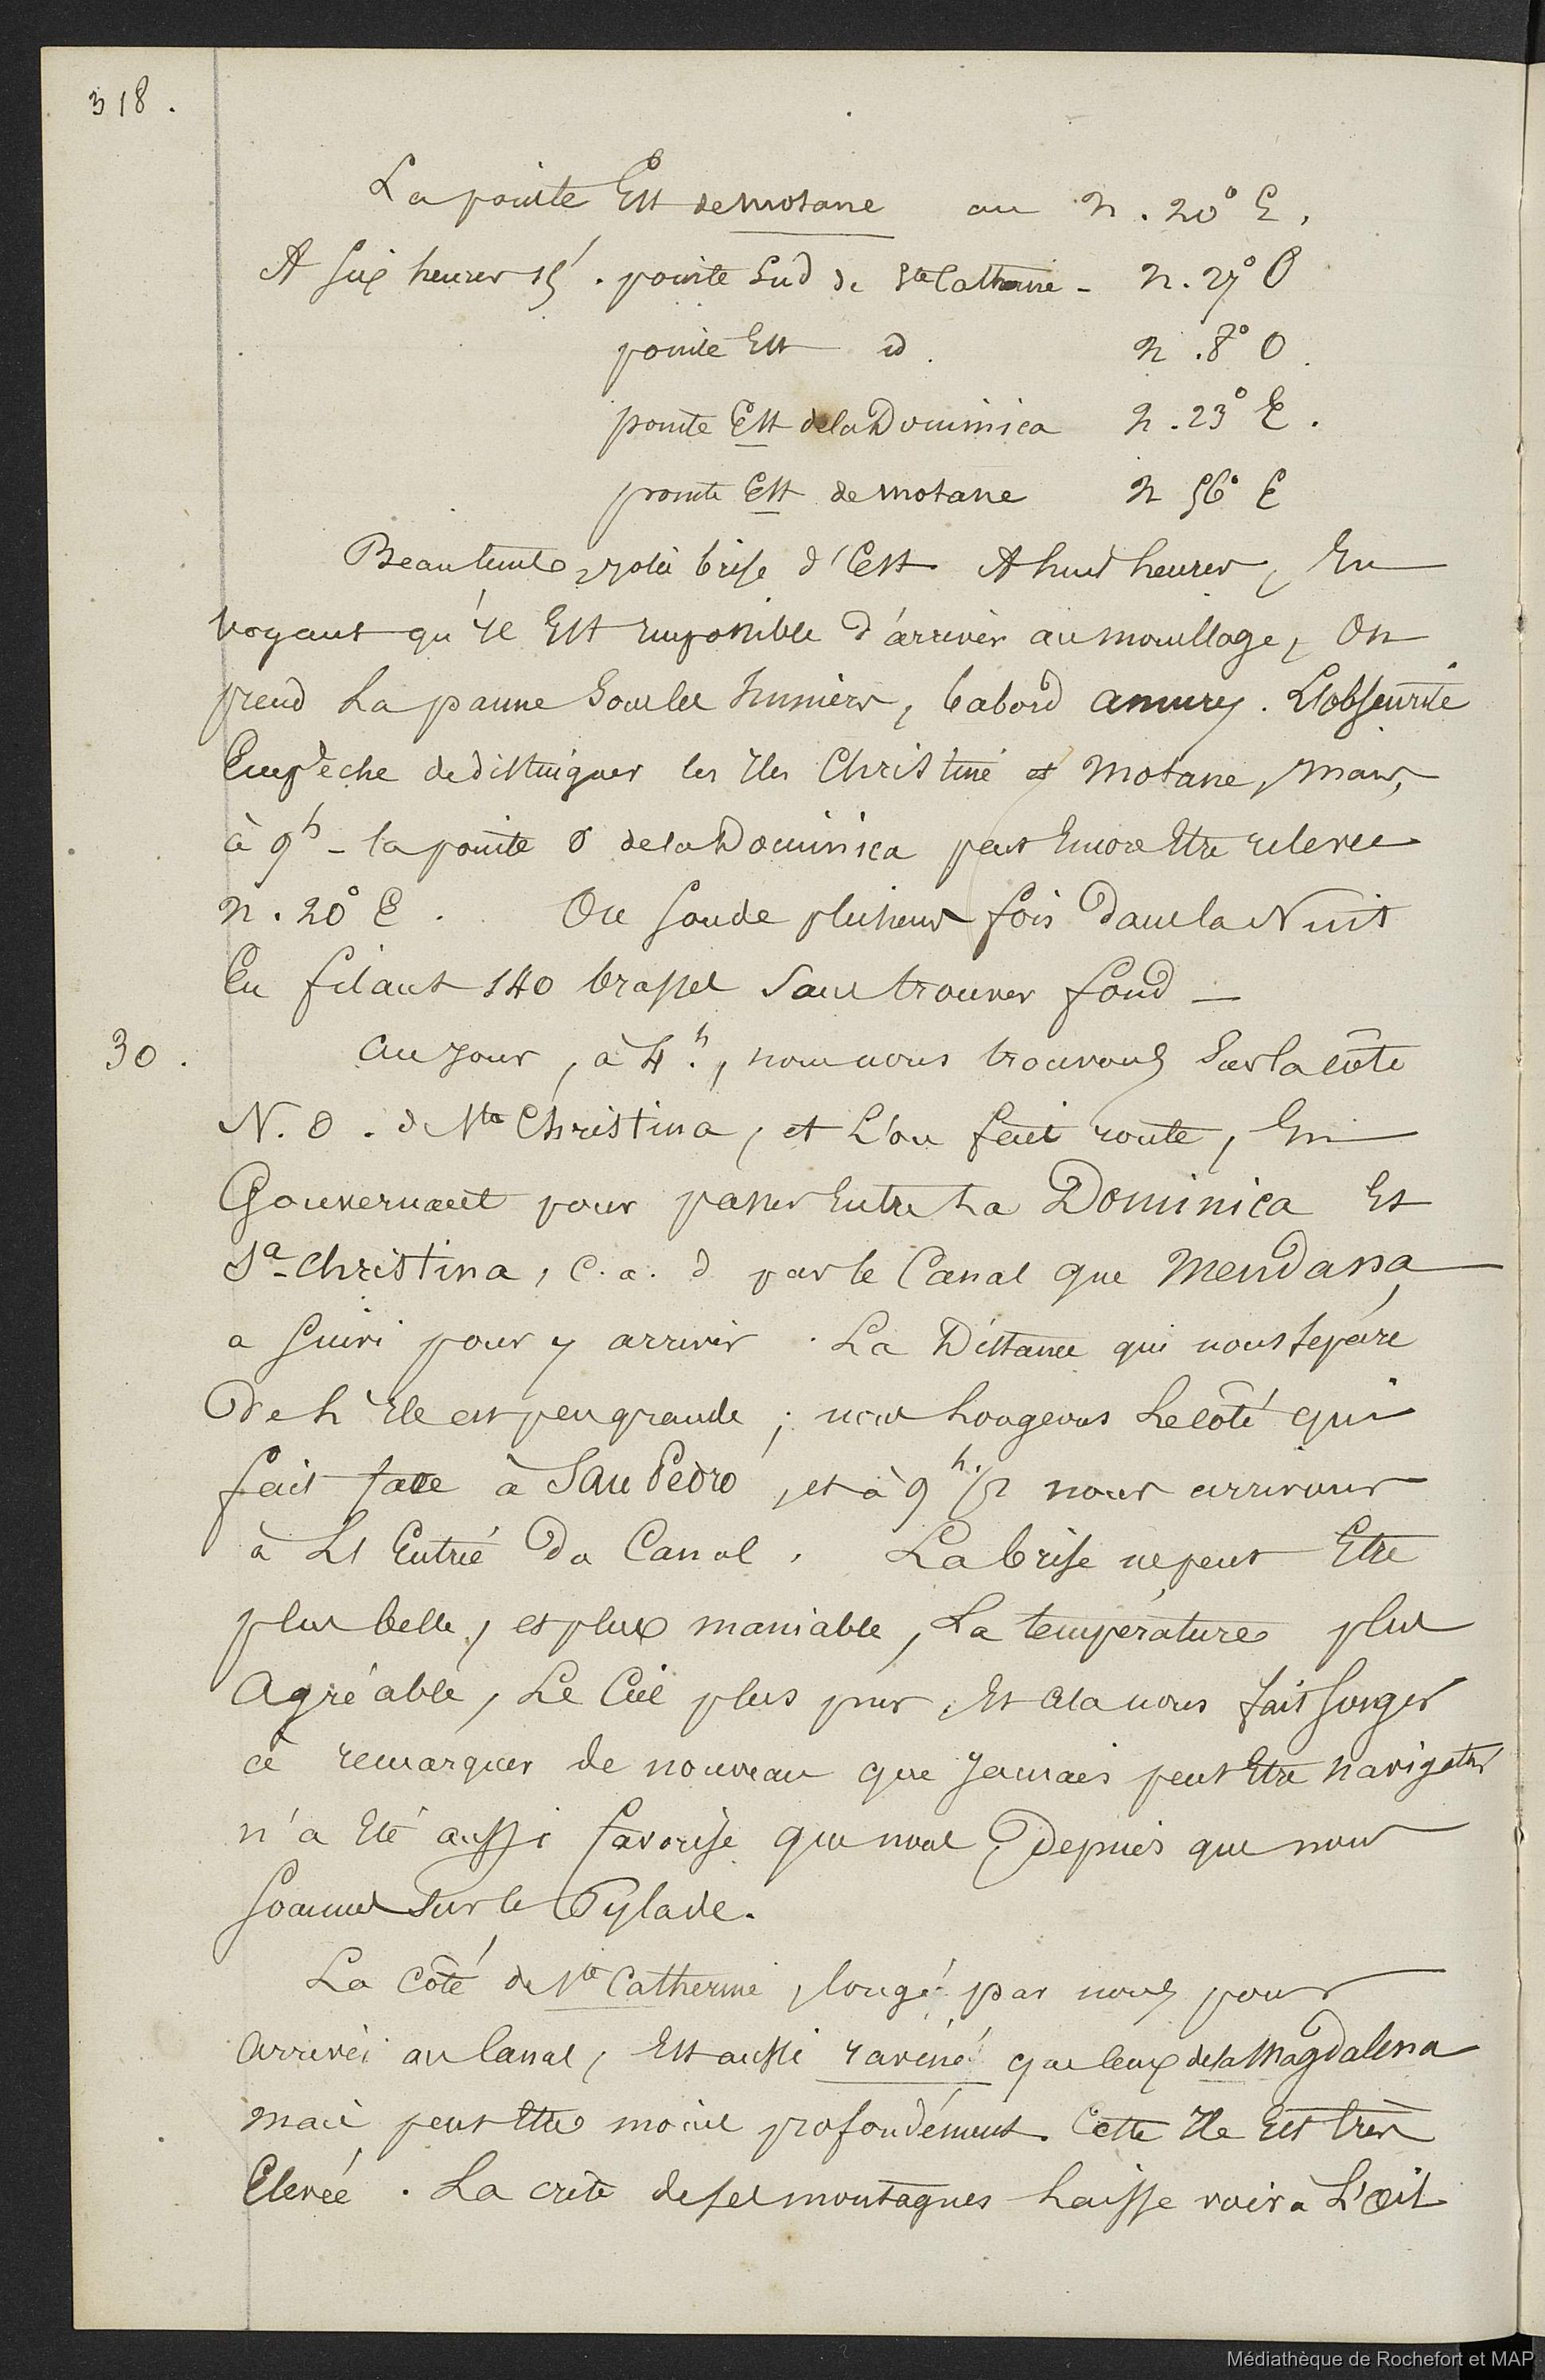 318.
La pointe Est de Motane au N. 20° E,
A six heures 15'. pointe Sud de Ste Catherine - N. 27° O
pointe Est id. N. 8° O.
pointe Est de la Dominica N. 23° E.
pointe Est de Motane N 56° E
Beau temps, jolie brise d'Est A huit heures, En
voyant qu'il Est impossible d'arriver au mouillage, On
prend La panne sous les huniers, babord amures. L'obscurité
Empêche de distinguer les Iles Christine et Motane, mais,
à 9h - la pointe O de la Dominica peut Encore Etre relevée
N. 20° E. On sonde plusieurs fois dans la Nuit
En filant 140 brasses sans trouver fond —
30.
Au jour, à 4h., nous nous trouvons sur la côte
N. O. de Sta Christina, et L'on fait route, En
Gouvernant pour passer Entre La Dominica Et
Sa Christina, c. a. d par le Canal que Mendana
a suivi pour y arriver. La Distance qui nous sépare
De L'Ile est peu grande; nous Longeons Le côté qui
fait face à San Pedro, et à 9h. 1/2 nous arrivons
à L'Entrée Du Canal. La brise ne peut Etre
plus belle, et plus maniable, La température plus
Agréable, Le Ciel plus pur, Et cela nous fait songer
à remarquer de nouveau que Jamais peut Etre navigateur
n'a Eté aussi favorisé que nous depuis que nous
sommes sur le Pylade.
La Côté de Ste Catherine, longé par nous pour
arriver au Canal, Est aussi raviné que ceux de la Magdalena
mais peut Etre moins profondément. Cette Ile Est très
Elevée. La crête de ses montagnes Laisse voir à L'Œil
Médiathèque de Rochefort et MAP